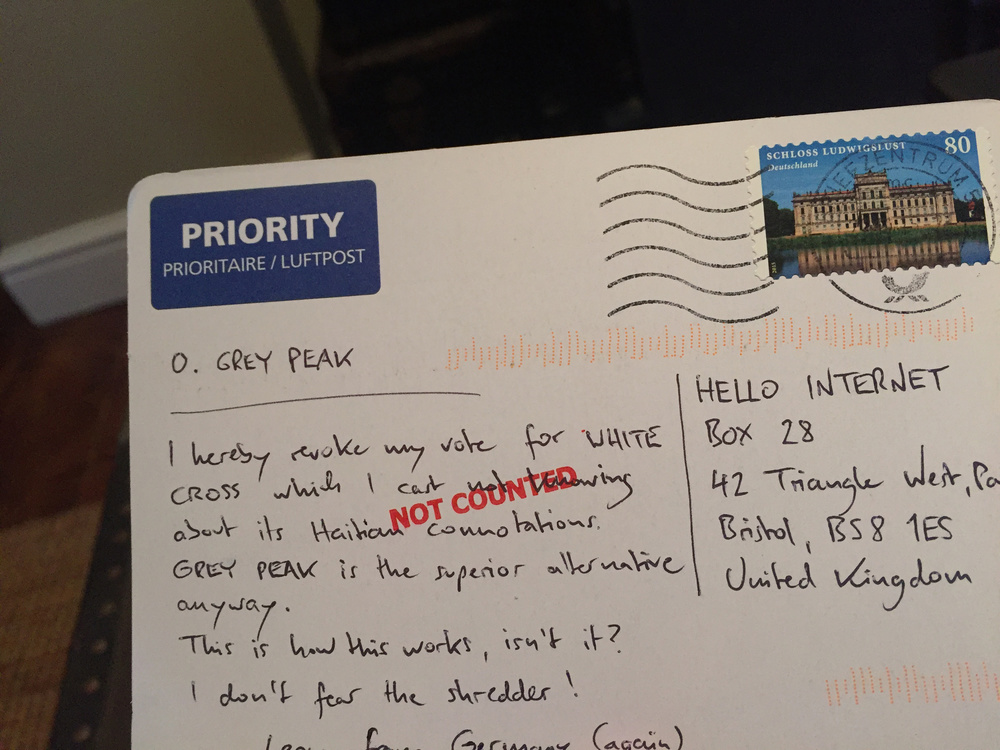 PRIORITY
PRIORITAIRE / LUFTPOST
SCHLOSS LUDWIGSLUST 80
Deutschland
2015
O. GREY PEAK
I hereby revoke my vote for WHITE
CROSS which I cast not knowing
about its Haitian connotations.
GREY PEAK is the superior alternative
anyway.
This is how this works, isn't it?
I don't fear the shredder!
from Germany (again)
NOT COUNTED
HELLO INTERNET
Box 28
42 Triangle West, Pa
Bristol, BS8 1ES
United Kingdom